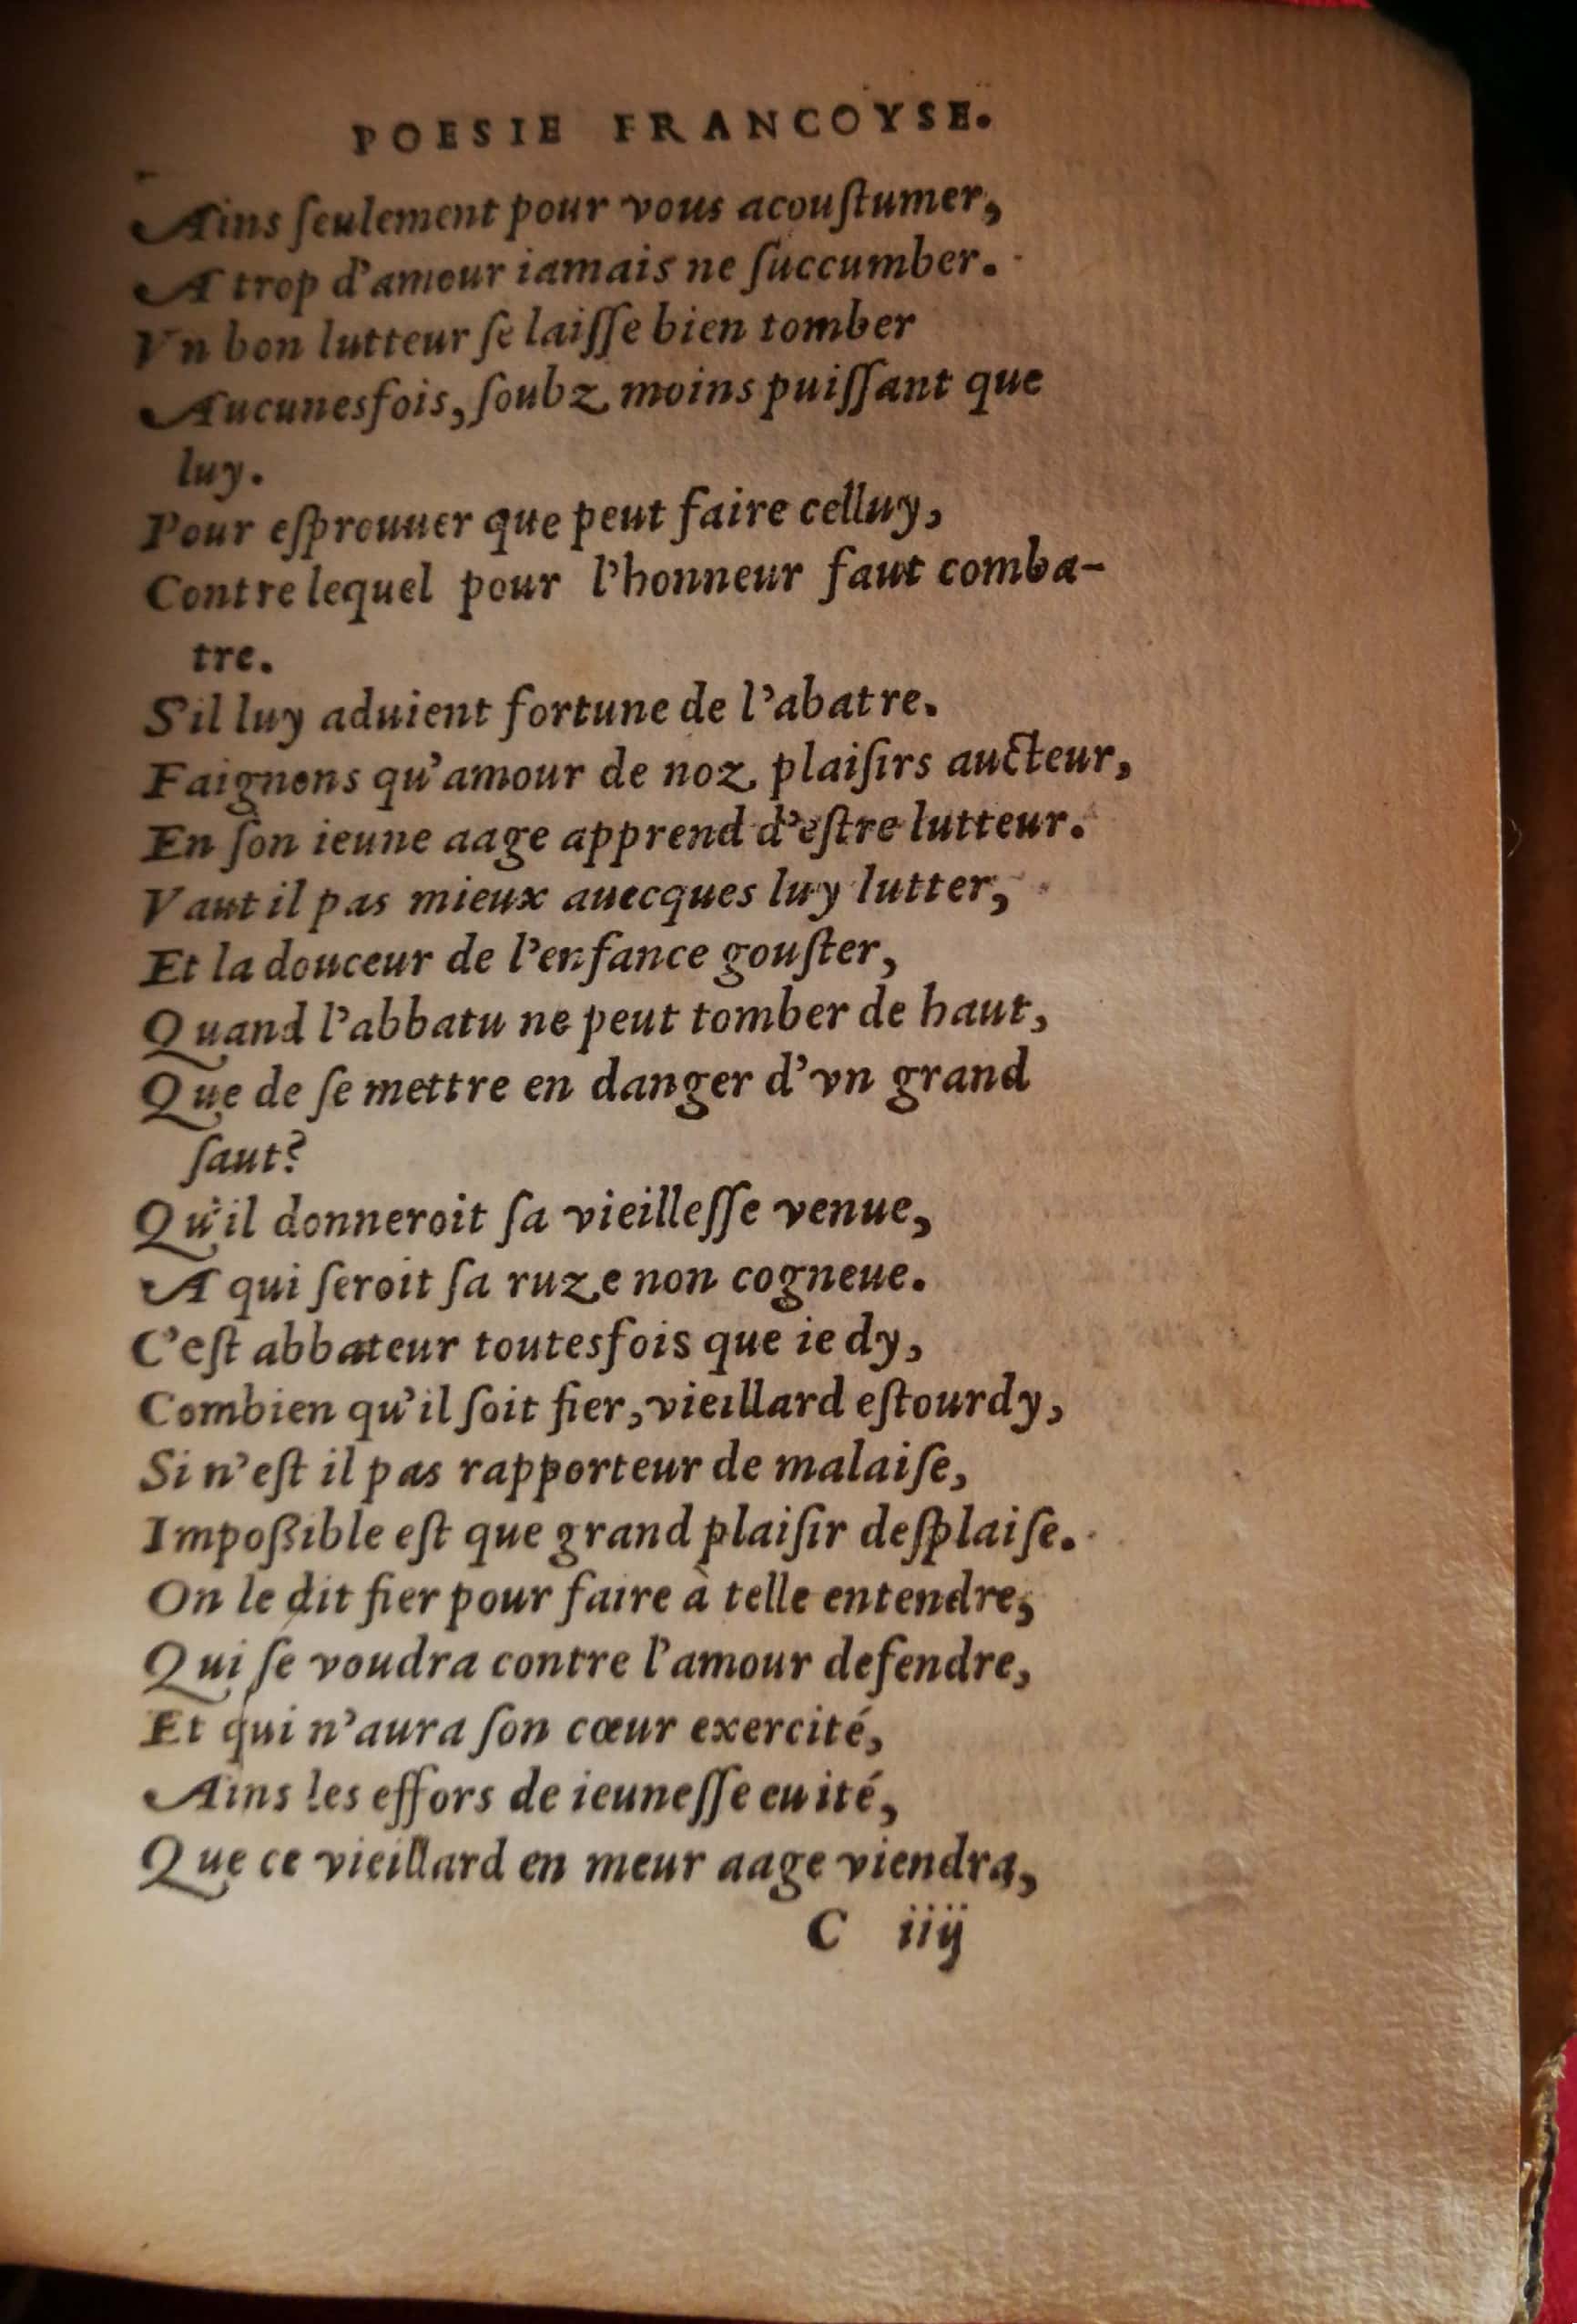 POESIE FRANCOYSE.
Ains ſeulement pour vous acouſtumer,
A trop d'amour iamais ne ſuccumber.
Vn bon lutteur ſe laiſſe bien tomber
Aucunesfois, ſoubz moins puiſſant que
luy.
Pour eſprouuer que peut faire celluy,
Contre lequel pour l'honneur faut comba-
tre.
S'il luy aduient fortune de l'abatre.
Faignons qu'amour de noz plaiſirs aucteur,
En ſon ieune aage apprend d'eſtre lutteur.
Vaut il pas mieux auecques luy lutter,
Et la douceur de l'enfance gouſter,
Quand l'abbatu ne peut tomber de haut,
Que de ſe mettre en danger d'vn grand
ſaut?
Qu'il donneroit ſa vieilleſſe venue,
A qui ſeroit ſa ruze non cogneue.
C'eſt abbateur toutesfois que ie dy,
Combien qu'il ſoit fier, vieillard eſtourdy,
Si n'eſt il pas rapporteur de malaiſe,
Impoßible eſt que grand plaiſir deſplaiſe.
On le dit fier pour faire à telle entendre,
Qui ſe voudra contre l'amour defendre,
Et qui n'aura ſon cœur exercité,
Ains les effors de ieuneſſe euité,
Que ce vieillard en meur aage viendra,
C iiij